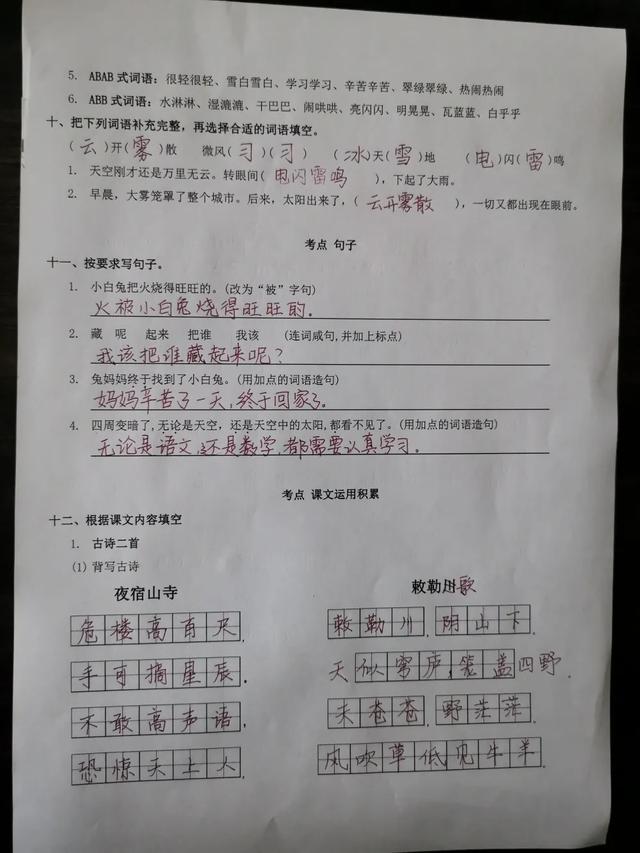 5. ABAB 式词语：很轻很轻、雪白雪白、学习学习、辛苦辛苦、翠绿翠绿、热闹热闹
6. ABB 式词语：水淋淋、湿漉漉、干巴巴、闹哄哄、亮闪闪、明晃晃、瓦蓝蓝、白乎乎
十、把下列词语补充完整，再选择合适的词语填空。
（云）开（雾）散 微风（习）（习） （冰）天（雪）地 （电）闪（雷）鸣
1. 天空刚才还是万里无云。转眼间（电闪雷鸣），下起了大雨。
2. 早晨，大雾笼罩了整个城市。后来，太阳出来了，（云开雾散），一切又都出现在眼前。
考点 句子
十一、按要求写句子。
1. 小白兔把火烧得旺旺的。(改为“被”字句)
火被小白兔烧得旺旺的.
2. 藏 呢 起来 把谁 我该 (连词成句,并加上标点)
我该把谁藏起来呢？
3. 兔妈妈终于找到了小白兔。(用加点的词语造句)
妈妈辛苦了一天,终于回家了。
4. 四周变暗了,无论是天空，还是天空中的太阳,都看不见了。(用加点的词语造句)
无论是语文,还是数学,都需要认真学习。
考点 课文运用积累
十二、根据课文内容填空
1. 古诗二首
(1) 背写古诗
夜宿山寺 敕勒川歌
危楼高百尺, 敕勒川, 阴山下.
手可摘星辰. 天似穹庐,笼盖四野.
不敢高声语, 天苍苍, 野茫茫.
恐惊天上人. 风吹草低见牛羊.